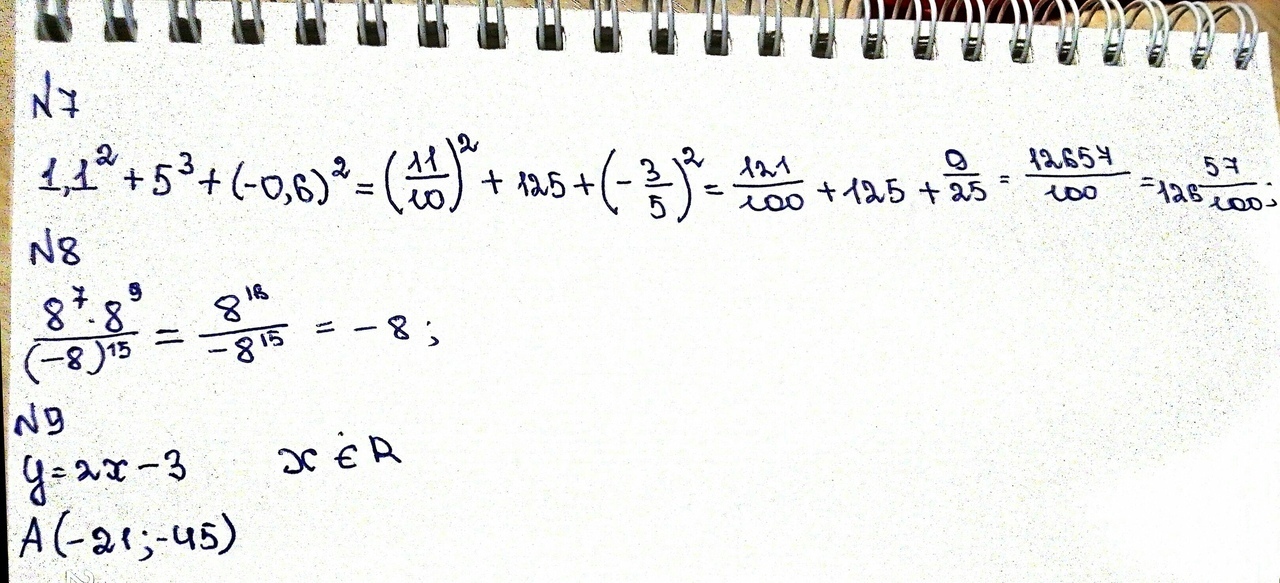 N7
1,1² + 5³ + (-0,6)² = (11/10)² + 125 + (-3/5)² = 121/100 + 125 + 9/25 = 12657/100 = 126 57/100;
N8
8⁷·8⁹/(-8)¹⁵ = 8¹⁶/-8¹⁵ = -8;
N9
y=2x-3 x ∈ R
A(-21;-45)